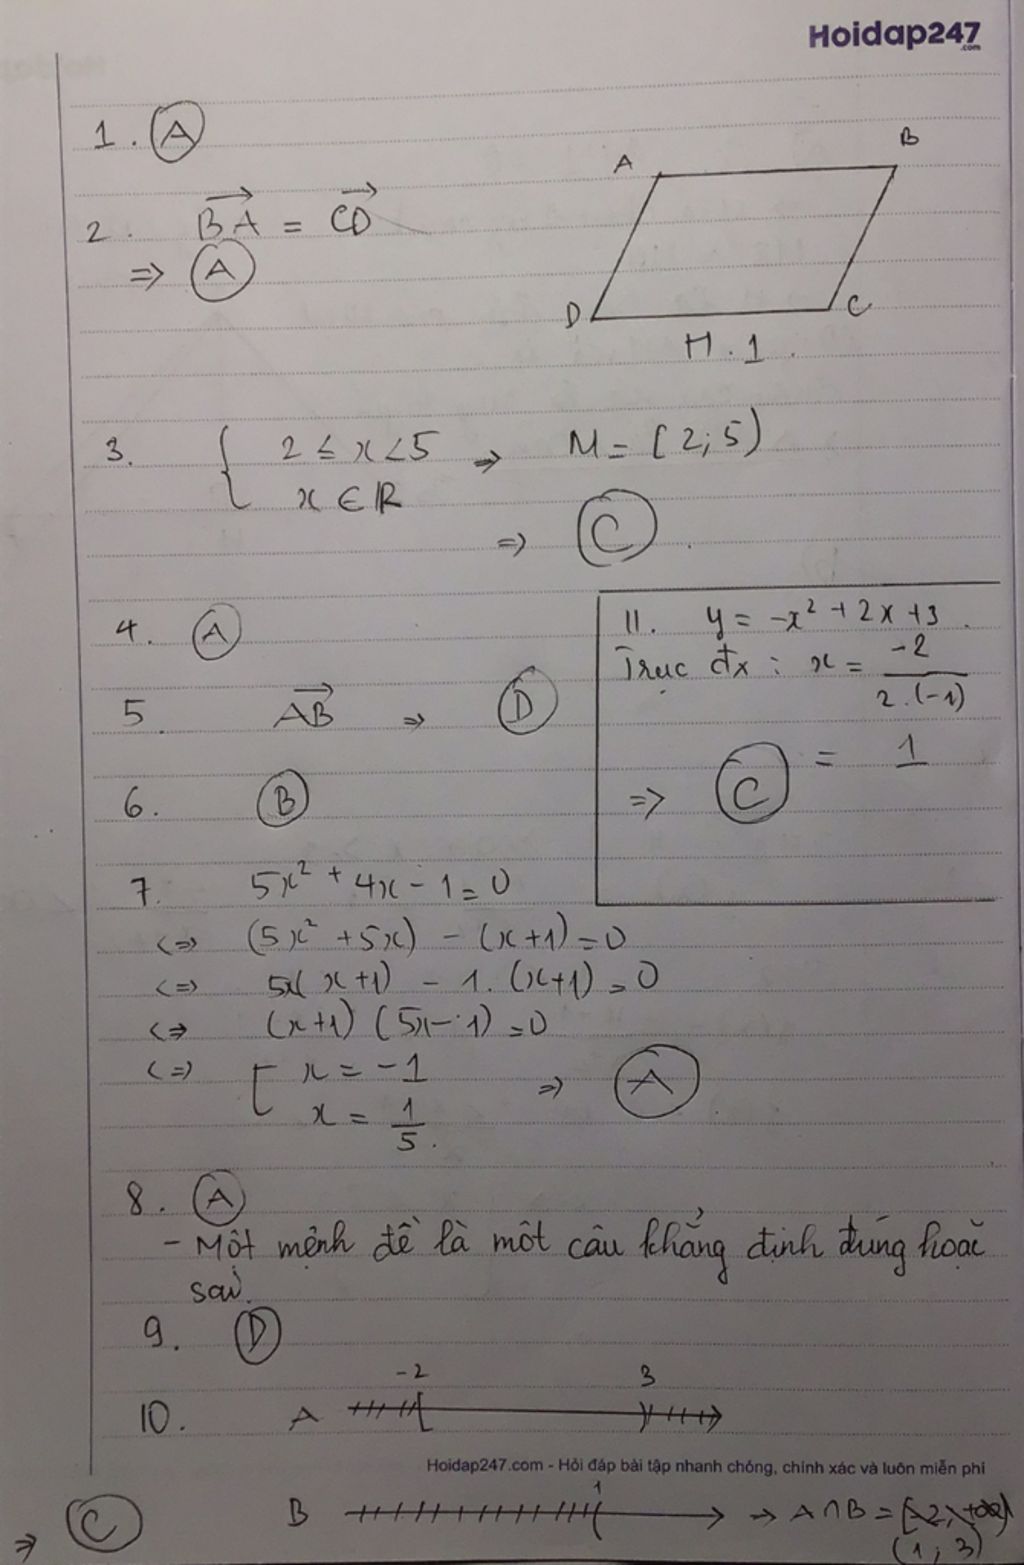 Hoidap247
.com
1. A
A B
2. BA = CD
=> A
D C
H.1.
3. { 2 ≤ x < 5 => M = [2;5)
x ∈ R
=> C.
4. A
5. AB => D
6. B
11. y = -x² + 2x + 3.
Trục đx : x = -2 / 2.(-1)
= 1
=> C
7. 5x² + 4x - 1 = 0
<=> (5x² + 5x) - (x+1) = 0
<=> 5x(x+1) - 1.(x+1) = 0
<=> (x+1)(5x-1) = 0
<=> [ x = -1 => A
x = 1/5.
8. A
- Một mệnh đề là một câu khẳng định đúng hoặc
sai.
9. D
-2 3
10. A
Hoidap247.com - Hỏi đáp bài tập nhanh chóng, chính xác và luôn miễn phí
1
=> C B → A ∩ B =
(1; 3)